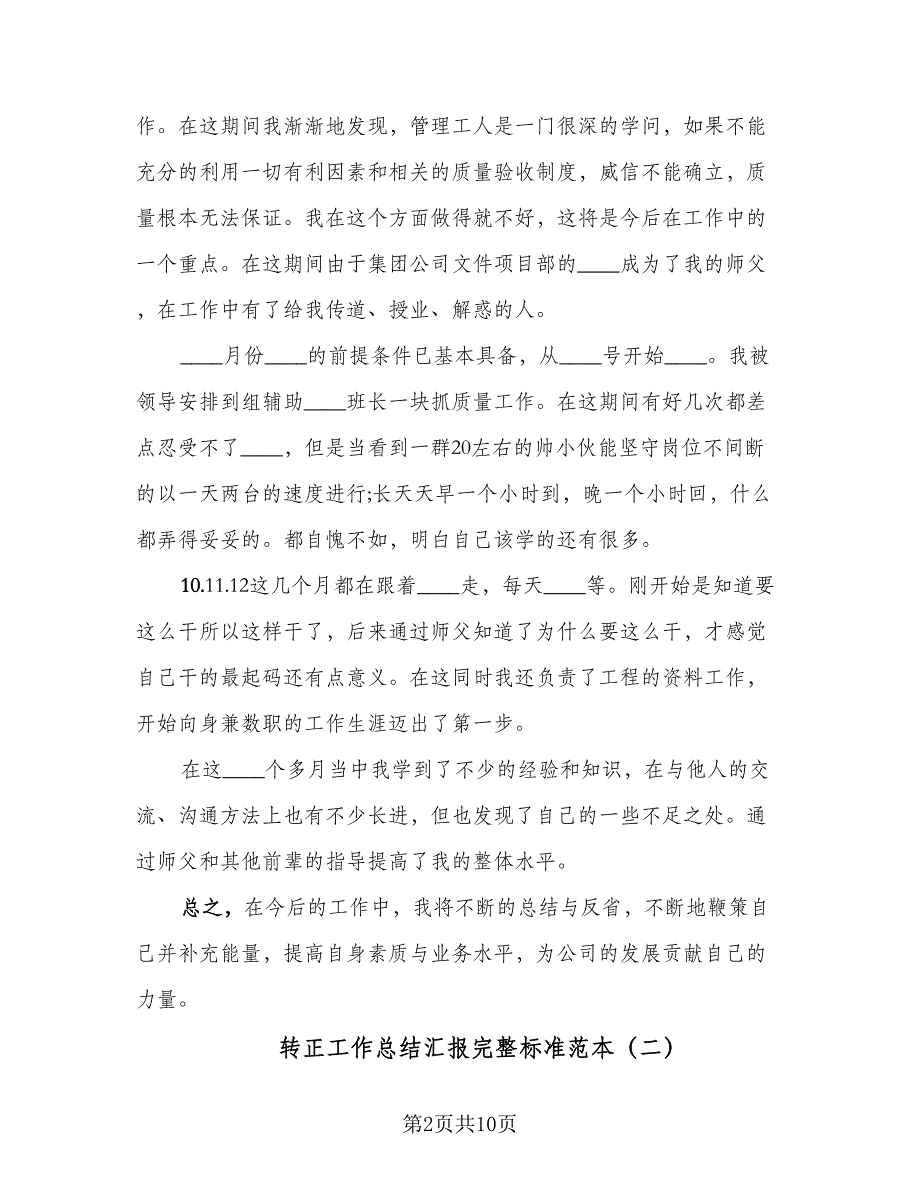 作。在这期间我渐渐地发现，管理工人是一门很深的学问，如果不能
充分的利用一切有利因素和相关的质量验收制度，威信不能确立，质
量根本无法保证。我在这个方面做得就不好，这将是今后在工作中的
一个重点。在这期间由于集团公司文件项目部的____成为了我的师父
，在工作中有了给我传道、授业、解惑的人。
____月份____的前提条件已基本具备，从____号开始____。我被
领导安排到组辅助____班长一块抓质量工作。在这期间有好几次都差
点忍受不了____，但是当看到一群20左右的帅小伙能坚守岗位不间断
的以一天两台的速度进行;长天天早一个小时到，晚一个小时回，什么
都弄得妥妥的。都自愧不如，明白自己该学的还有很多。
10.11.12这几个月都在跟着____走，每天____等。刚开始是知道要
这么干所以这样干了，后来通过师父知道了为什么要这么干，才感觉
自己干的最起码还有点意义。在这同时我还负责了工程的资料工作，
开始向身兼数职的工作生涯迈出了第一步。
在这____个多月当中我学到了不少的经验和知识，在与他人的交
流、沟通方法上也有不少长进，但也发现了自己的一些不足之处。通
过师父和其他前辈的指导提高了我的整体水平。
总之，在今后的工作中，我将不断的总结与反省，不断地鞭策自
己并补充能量，提高自身素质与业务水平，为公司的发展贡献自己的
力量。
转正工作总结汇报完整标准范本（二）
第2页共10页